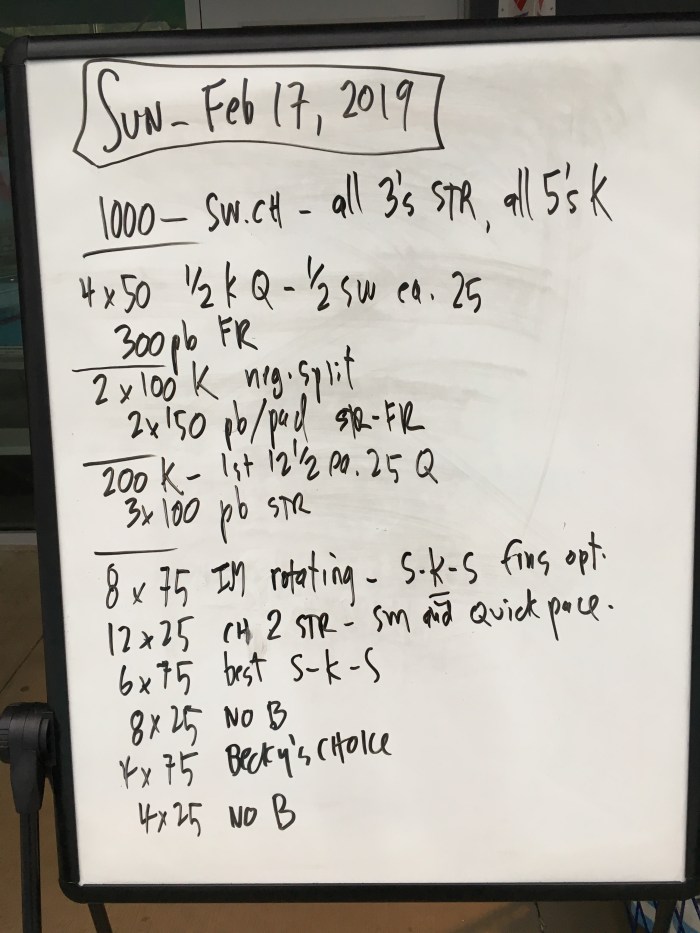 Sun- Feb 17, 2019
1000 - SW.CH - all 3's STR, all 5's K
4x50 1/2 K Q - 1/2 SW ea. 25
300 pb FR
2 x 100 K neg. split
2x150 pb/pad STR-FR
200 K - 1st 12 1/2 ea. 25 Q
3x100 pb STR
8 x 75 IM rotating - S-K-S fins opt.
12x25 CH 2 STR - sm and Quick pace.
6x75 best S-K-S
8x25 NO B
4x75 Becky's CHOICE
4x25 NO B